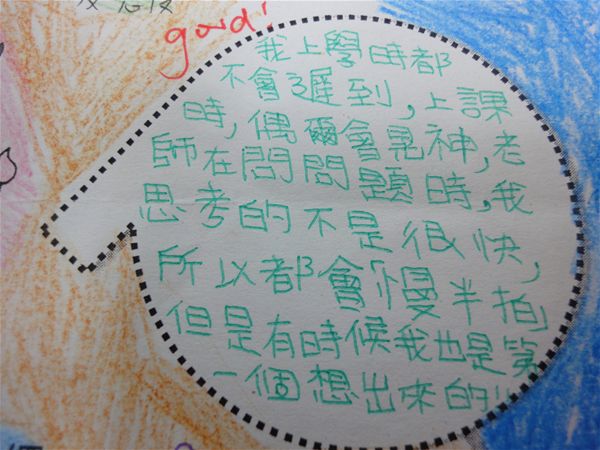 good!
我上學時都
不會遲到，上課
時，偶爾會晃神，老
師在問問題時，我
思考的不是很快，
所以都會慢半拍，
但是有時候我也是第
一個想出來的